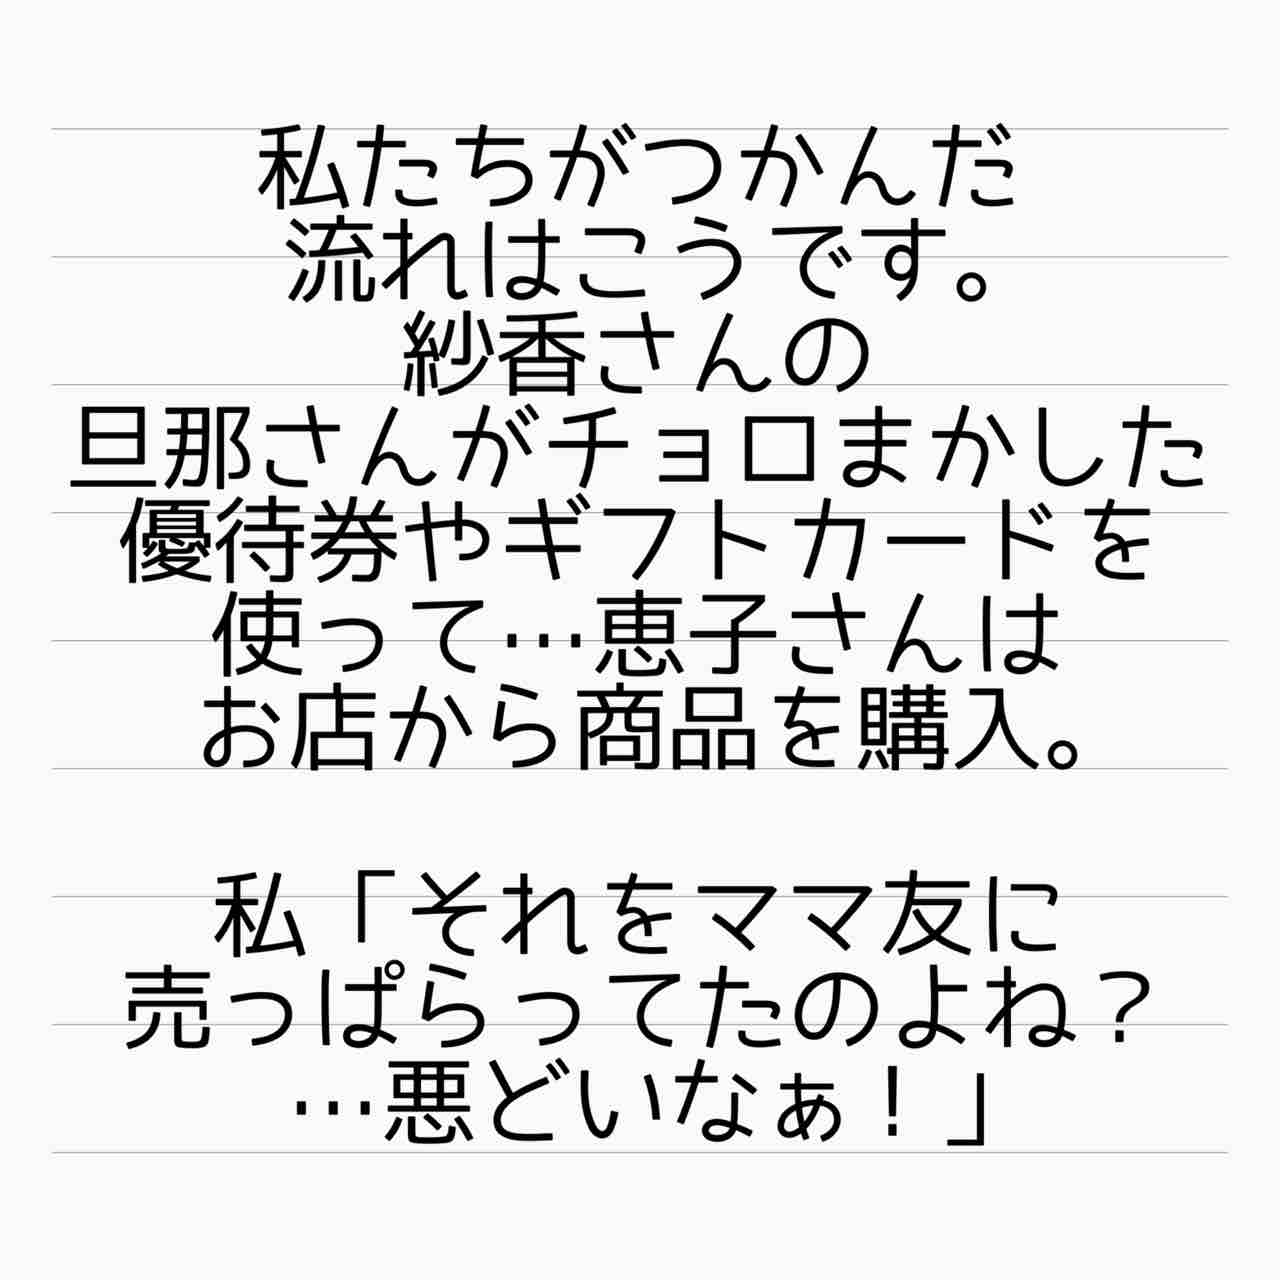 私たちがつかんだ
流れはこうです。
紗香さんの
旦那さんがチョロまかした
優待券やギフトカードを
使って…恵子さんは
お店から商品を購入。
私「それをママ友に
売っぱらってたのよね？
…悪どいなぁ！」